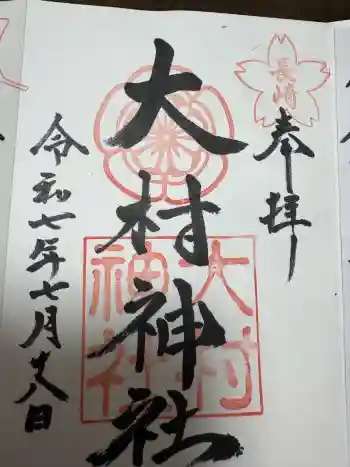 長崎
奉拝
大村神社
大村
神社
令和七年七月十八日